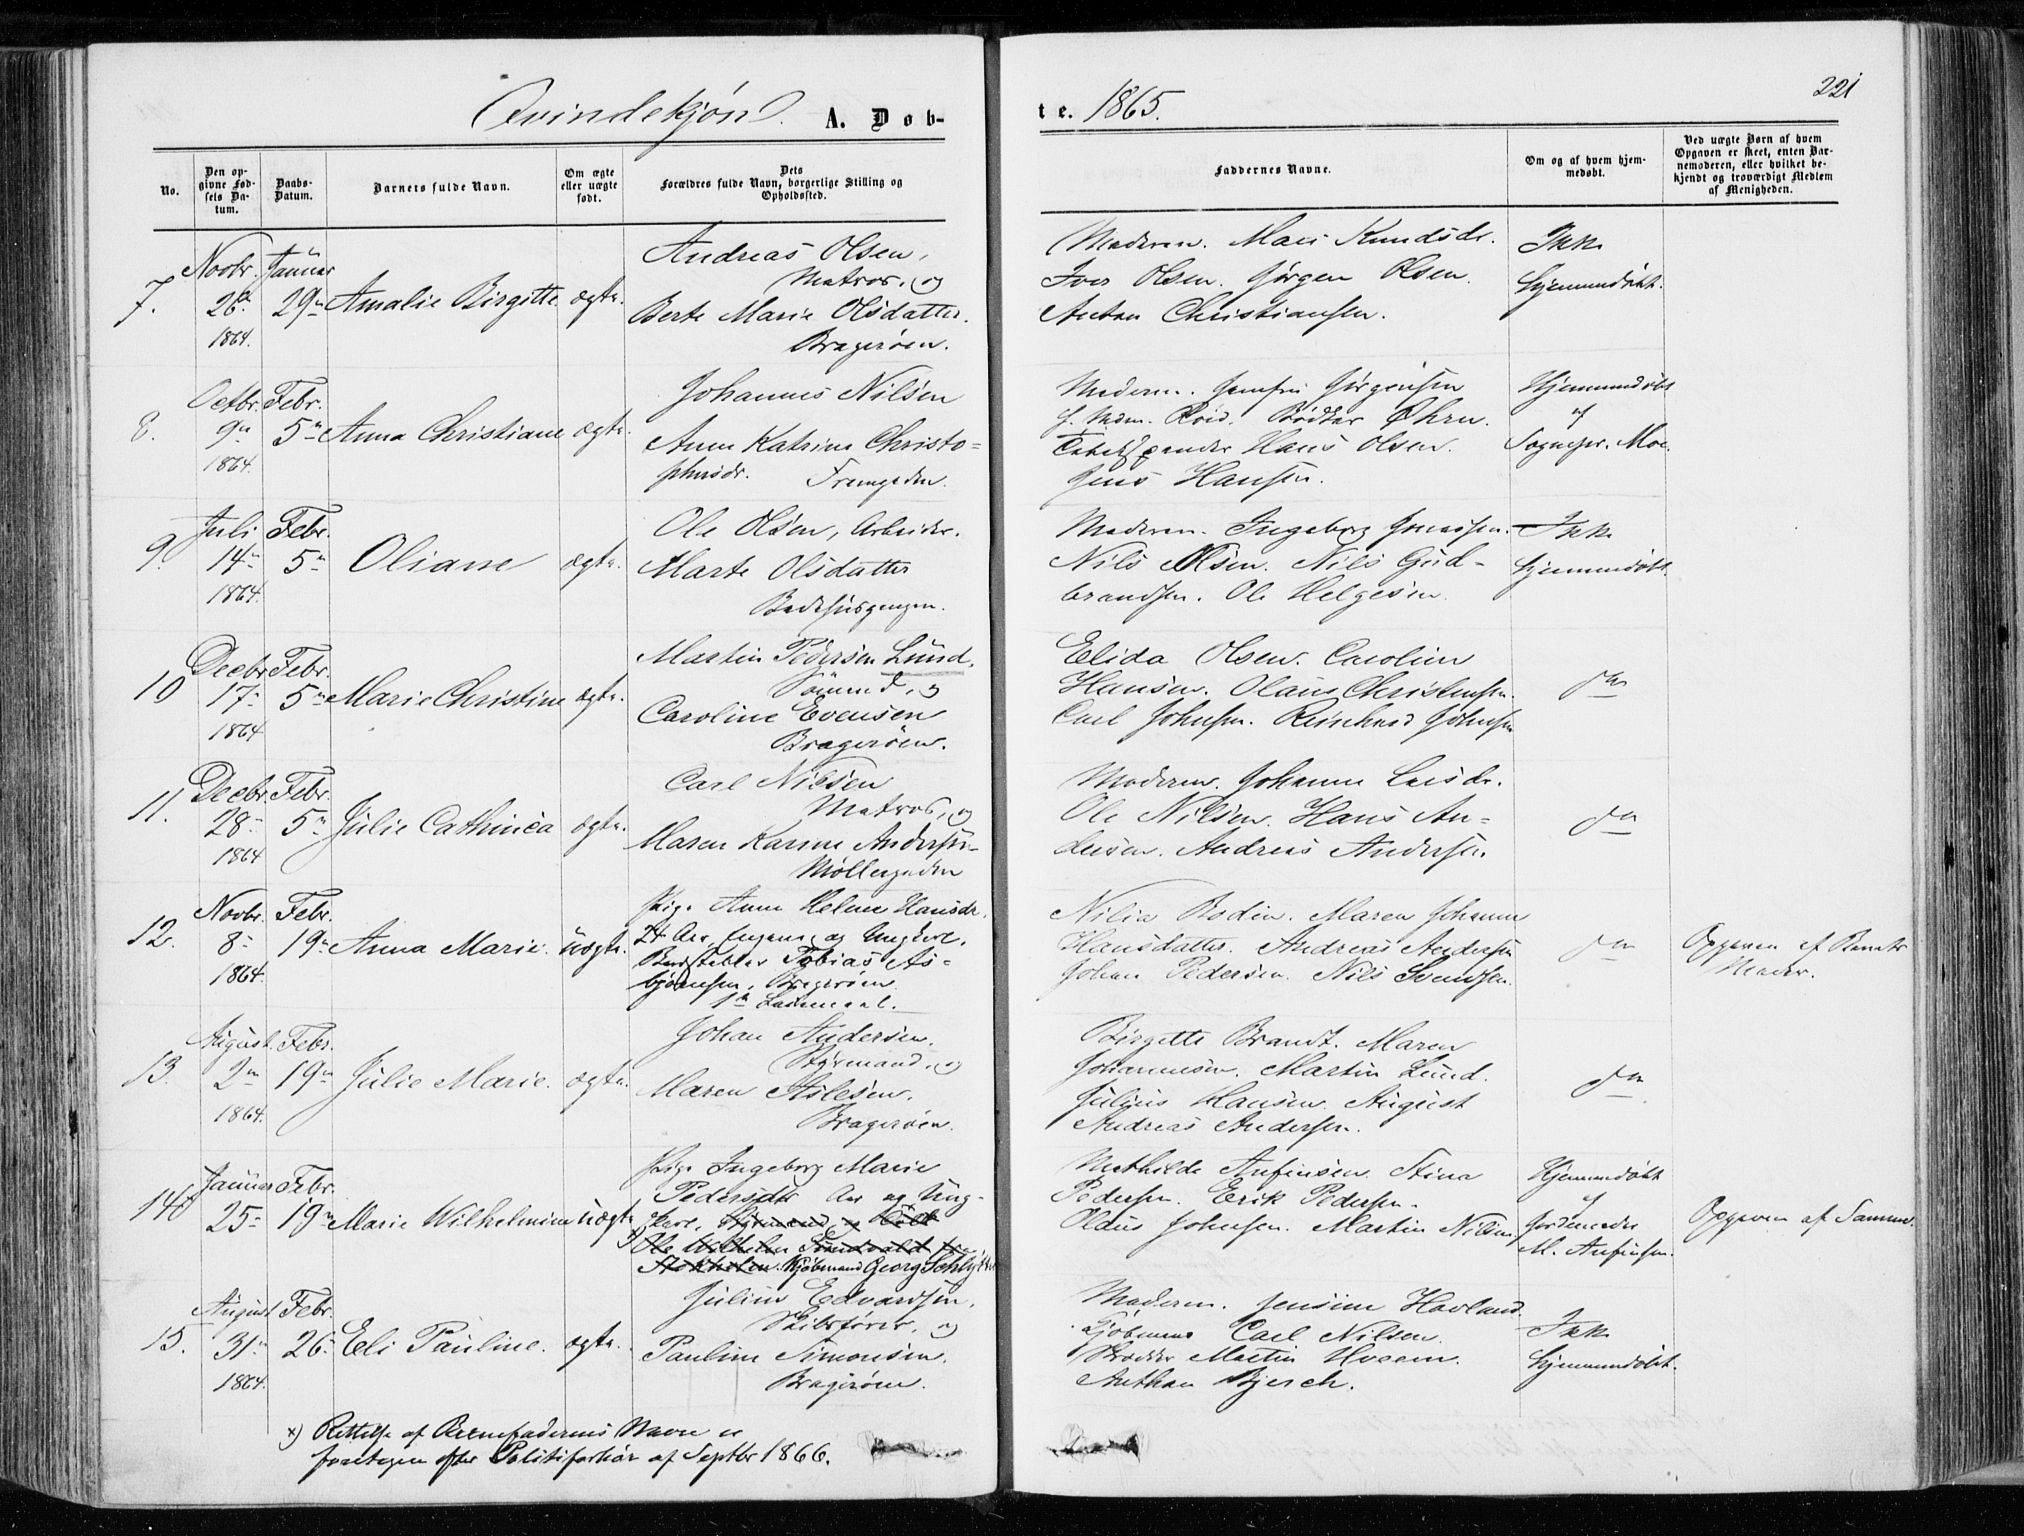 221
Qvindekjøn. A. Døb-
te. 1865.
No.
Den opgivne Fødsels Datum.
Daabs-Datum.
Barnets fulde Navn.
Om ægte eller uægte født.
Dets Forældres fulde Navn, borgerlige Stilling og Opholdssted.
Faddernes Navne.
Om og af hvem hjemmedøbt.
Ved uægte Børn af hvem Opgaven er skeet, enten Barnemoderen, eller hvilket bekjendt og troværdigt Medlem af Menigheden.
7. Novbr. 28de 1864. Januar 29de Amalie Birgitte. ægte.
Andreas Olsen,
Matros, og
Berte Marie Olsdatter.
Bragerøen.
Moderen. Mari Knudsdr.
Iver Olsen. Jørgen Olsen.
Anton Christiansen.
Ikke
hjemmedøbt.
8. Octbr. 9de 1864. Febr. 5te Anna Christiane ægte.
Johannes Nilsen
Anne Katrine Christo-
phersdr.
Moderen. Jomfru Jørgensen
Bødker Øhrn.
Hans Olsen.
Jens Hansen.
Hjemmedøbt
af
Sognepr. Moe.
9. Juli 14de 1864. Febr. 5te Oliane ægte.
Ole Olsen, Arbeider.
Marte Olsdatter
Moderen. Ingeborg Jonassen.
Nils Olsen. Nils Gud-
brandsen. Ole Helgesen.
Ikke
hjemmedøbt.
10 Decbr. 17de 1864 Febr. 5te Marie Christine ægte.
Martin Pedersen Lund,
Sømand, og
Caroline Evensen
Bragerøen.
Elida Olsen. Caroline
Hansen. Olaus Christensen.
Carl Johnsen. Reinhard Johnsen
do
11. Decbr. 28de 1864 Febr. 5te Julie Cathinca ægte.
Carl Nilsen
Matros, og
Maren Karine Andersen
Møllergaden
Moderen. Johanne Larsdr.
Ole Nilsen. Hans An-
dersen. Andreas Andersen.
do
12. Novbr. 8de 1864. Febr. 19de Anna Marie. uægte.
Pige Anne Helene Hansdr.
24 Aar, og Ungkarl,
Tobias As-
bjørnsen. Bragerøen.
1ste Leiermaal.
Nilia Bodin. Maren Johanne
Hansdatter. Andreas Andersen
Johan Pedersen. Nils Svendsen.
do
Opgaven af Barnets
Moder.
13. August 2den 1864. Febr. 19de Julie Marie. ægte.
Johan Andersen.
Styrmand, og
Maren Aslesen.
Bragerøen.
Birgitte Brandt. Maren
Johannesen. Martin Lund.
Julius Hansen. August
Andreas Andersen.
do
14. Januar 25de Febr. 19de Marie Wilhelmine uægte
Pige Ingeborg Marie
Pedersdtr Aar og Ung-
karl, Styrmand
x) Ole Wilhelm Sundvald fra
Stokholm. Kjøbmand Georg Schlytter
Mathilde Anfinsen. Stina
Pedersen. Erik Pedersen.
Olaus Johnsen. Martin Nilsen
Hjemmedøbt
af
Jordemoder
M. Anfinsen.
Opgaven af Samme.
15. August 31te 1864. Febr. 26de Eli Pauline. ægte.
Julius Edvardsen,
Skibsfører, og
Pauline Simonsen.
Bragerøen.
Moderen. Jensine Havland.
Kjøbmand Carl Nilsen.
Martin Hveem.
Anthon Bjerch.
Ikke
hjemmedøbt.
x) Rettelse af Barnefaderens Navn er
foretagen efter Politiforhør af Septbr 1866.